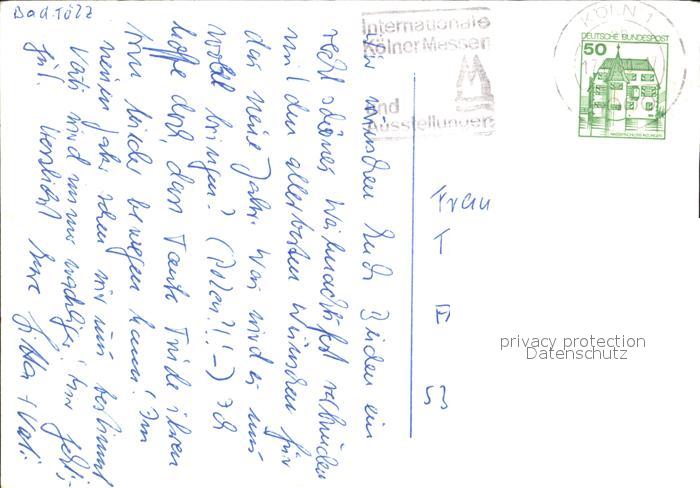 Bad-Tölz
Internationale
Kölner Messen
und
Ausstellungen
KÖLN 1
DEUTSCHE BUNDESPOST
50
WASSERSCHLOSS INZLINGEN
Wir wünschen Euch Beiden ein
recht schönes Weihnachtsfest verbunden
mit den allerbesten Wünschen für
das neue Jahr. Was wird es uns
wohl bringen? (Polen?!!-) Ich
hoffe doch, dass Tante Trude ihren
Arm wieder bewegen kann! Im
neuen Jahr sehen wir uns bestimmt
Vati wird immer
gut. Herzlichst Eure + Vati
Frau
T
II
53
privacy protection
Datenschutz